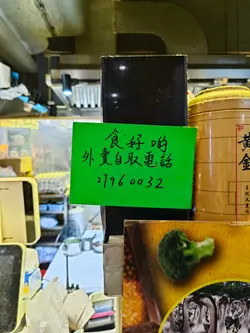 食好啲
外賣自取電話
27960032
黃
金